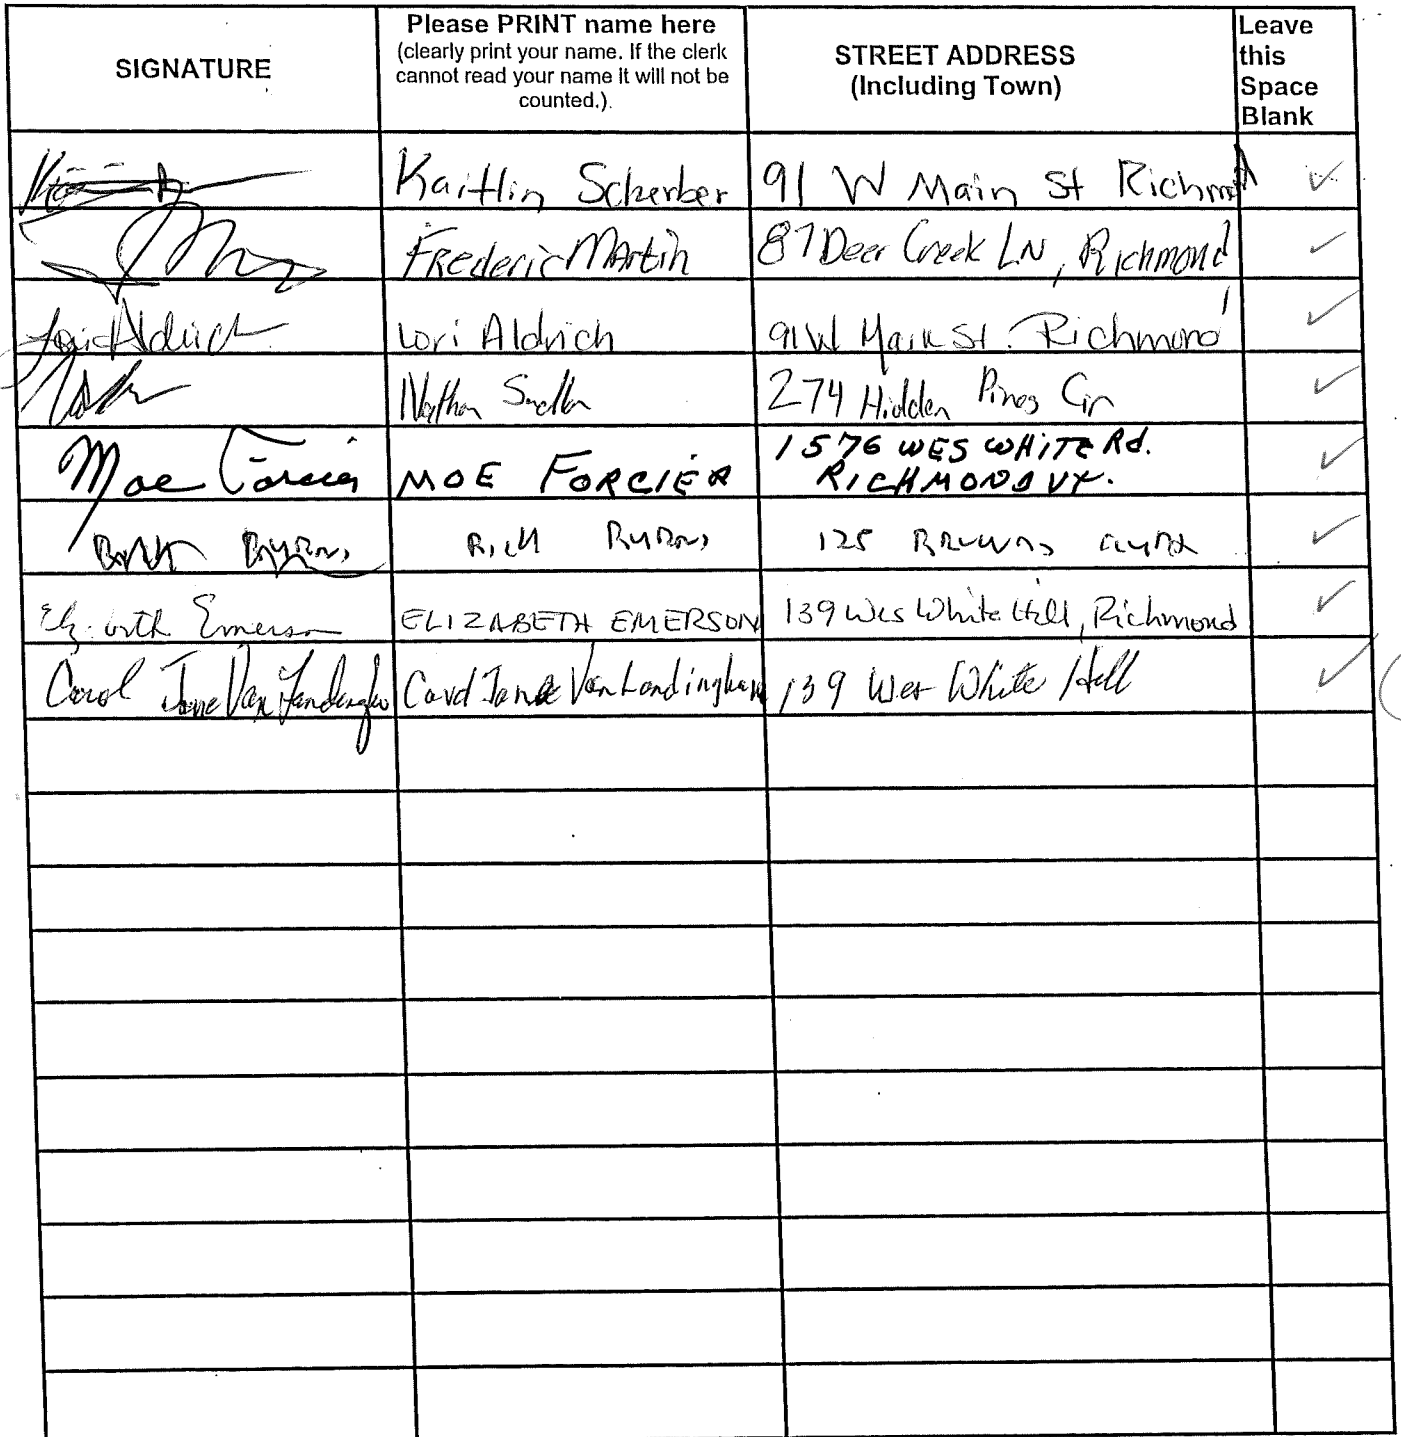 SIGNATURE
Please PRINT name here
(clearly print your name. If the clerk
cannot read your name it will not be
counted.).
STREET ADDRESS
(Including Town)
Leave
this
Space
Blank
Kaitlin Scherber 91 W Main St Richmond
Frederic Martin 87 Deer Creek LN, Richmond
Lori Aldrich Lori Aldrich 91 W Main St. Richmond
Nathan 274 Hidden Pines Cir
Moe Forcier MOE FORCIER 1576 WES WHITE Rd.
RICHMOND VT.
Byrns Rich Byrns 125
Emerson ELIZABETH EMERSON 139 Wes White Hill, Richmond
Carol Jane Van Landingham Carol Jane Van Landingham 139 Wes White Hill